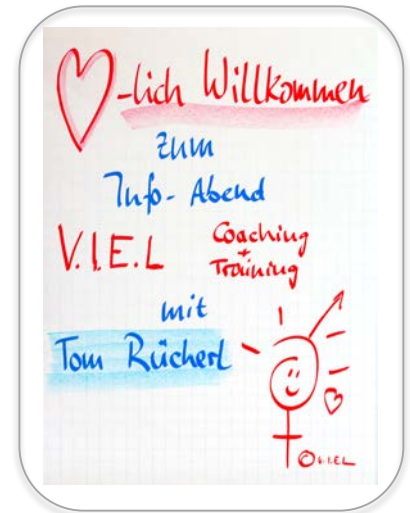 -lich Willkommen
zum
Info-Abend
V.I.E.L Coaching
+
Training
mit
Tom Rückerl
©V.I.E.L